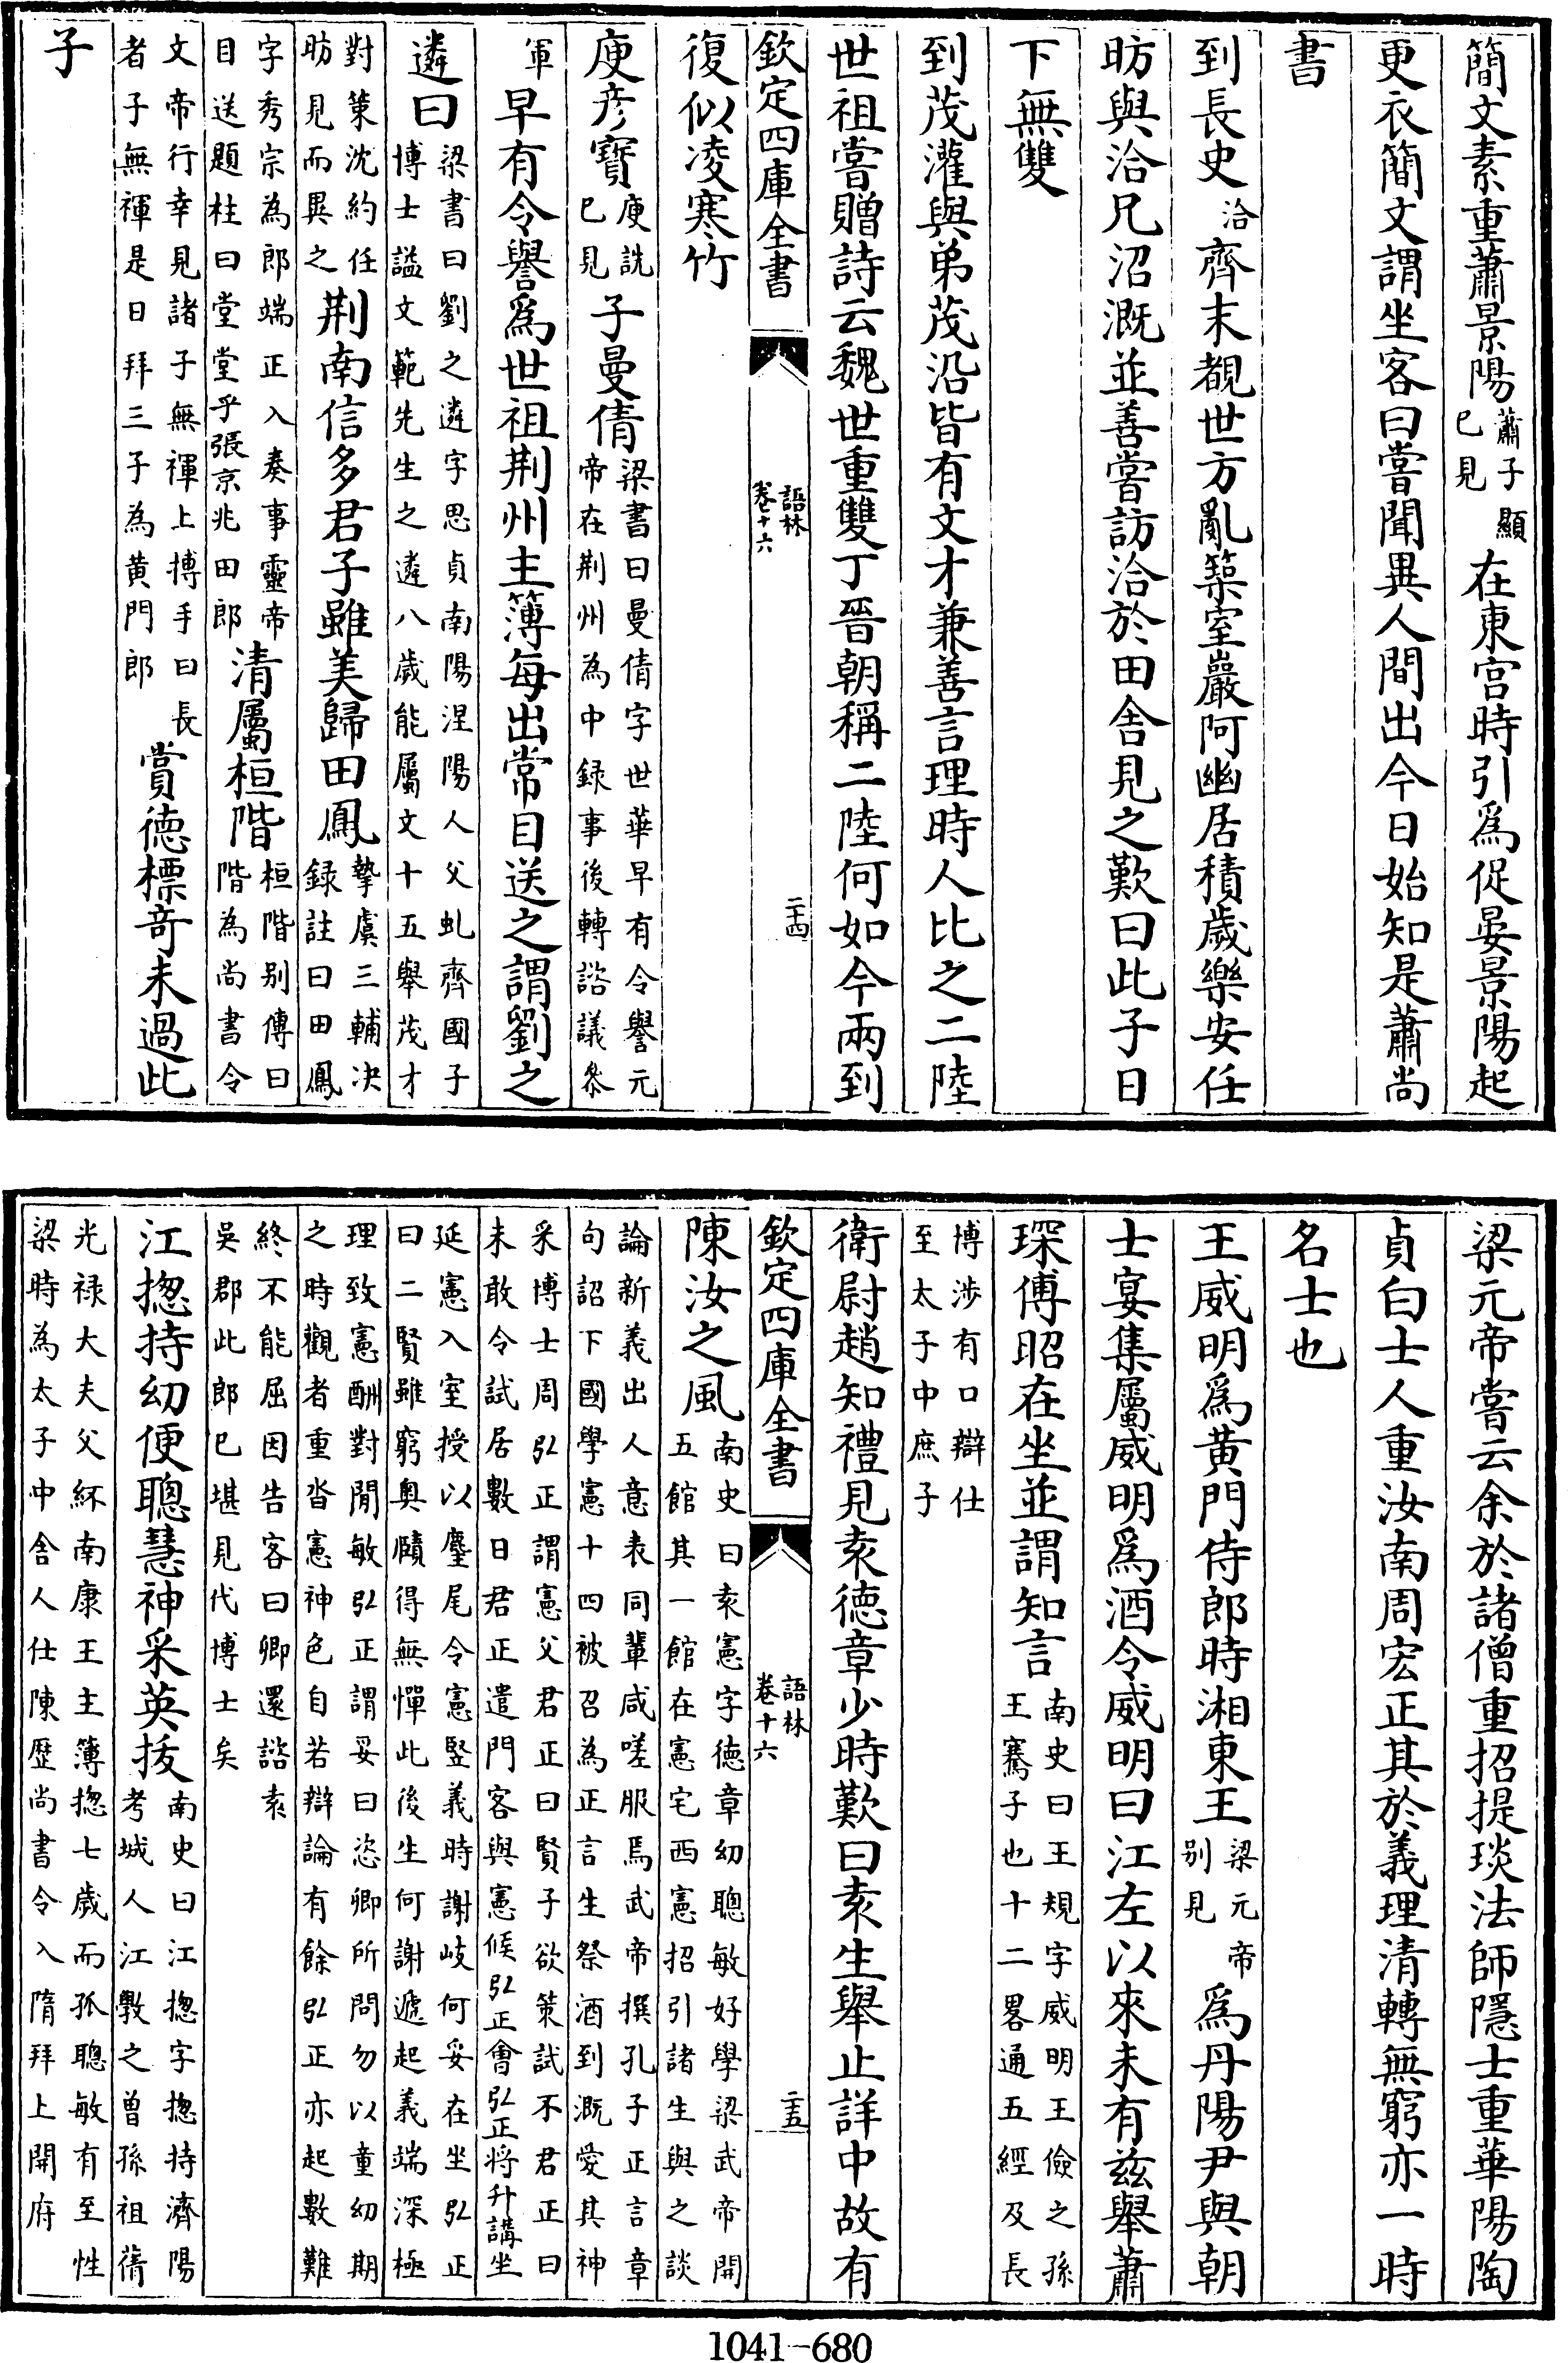 簡文素重蕭景陽蕭子顯已見在東宫時引爲促晏景陽起
更衣簡文謂坐客曰嘗聞異人間出今日始知是蕭尚
書
到長史洽齊末覩世方亂築室巖阿幽居積歲樂安任
昉與洽兄沼溉並善嘗訪洽於田舍見之歎曰此子日
下無雙
到茂灌與弟茂沿皆有文才兼善言理時人比之二陸
世祖嘗贈詩云魏世重雙丁晉朝稱二陸何如今兩到
欽定四庫全書 語林 卷十六 二十四
復似凌寒竹
庾彦寶庾詵已見子曼倩梁書曰曼倩字世華早有令譽元帝在荆州為中録事後轉諮議叅
軍早有令譽爲世祖荆州主簿每出常目送之謂劉之
遴曰梁書曰劉之遴字思貞南陽涅陽人父虬齊國子博士謚文範先生之遴八歲能屬文十五舉茂才
對策沈約任昉見而異之荆南信多君子雖美歸田鳳摯虞三輔决録註曰田鳳
字秀宗為郎端正入奏事靈帝目送題柱曰堂堂乎張京兆田郎清屬桓階桓階别傳曰階為尚書令
文帝行幸見諸子無褌上搏手曰長者子無褌是日拜三子為黄門郎賞德標竒未過此
子
梁元帝嘗云余於諸僧重招提琰法師隱士重華陽陶
貞白士人重汝南周宏正其於義理清轉無窮亦一時
名士也
王威明爲黄門侍郎時湘東王梁元帝别見爲丹陽尹與朝
士宴集屬威明爲酒令威明曰江左以來未有兹舉蕭
琛傅昭在坐並謂知言南史曰王規字威明王儉之孫王騫子也十二畧通五經及長
博渉有口辯仕至太子中庶子
衛尉趙知禮見袁德章少時歎曰袁生舉止詳中故有
欽定四庫全書 語林 卷十六 二十五
陳汝之風南史曰袁憲字德章幼聰敏好學梁武帝開五館其一館在憲宅西憲招引諸生與之談
論新義出人意表同輩咸嗟服焉武帝撰孔子正言章句詔下國學憲十四被召為正言生祭酒到溉愛其神
采博士周弘正謂憲父君正曰賢子欲策試不君正曰未敢令試居數日君正遣門客與憲候弘正會弘正將升講坐
延憲入室授以麈尾令憲竪義時謝岐何妥在坐弘正曰二賢雖窮奥賾得無憚此後生何謝遞起義端深極
理致憲酬對閒敏弘正謂妥曰恣卿所問勿以童幼期之時觀者重沓憲神色自若辯論有餘弘正亦起數難
終不能屈因告客曰卿還諮袁吳郡此郎已堪見代博士矣
江揔持幼便聰慧神采英拔南史曰江揔字揔持濟陽考城人江斆之曾孫祖蒨
光禄大夫父紑南康王主簿揔七歲而孤聰敏有至性梁時為太子中舍人仕陳歴尚書令入隋拜上開府
1041-680